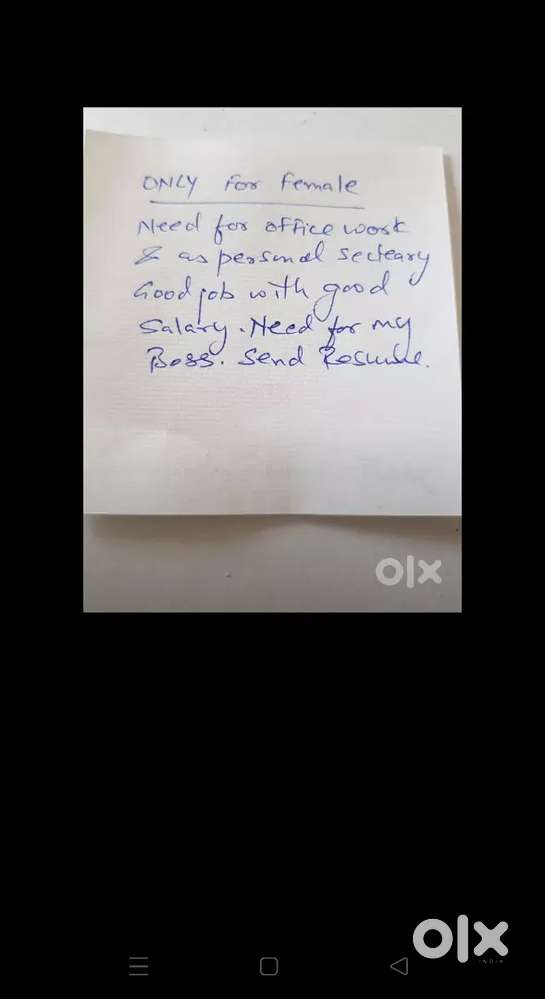 ONLY for Female
Need for office work
& as personal secteary
Good job with good
Salary. Need for my
Boss. Send Resume.
olx
olx
INDIA